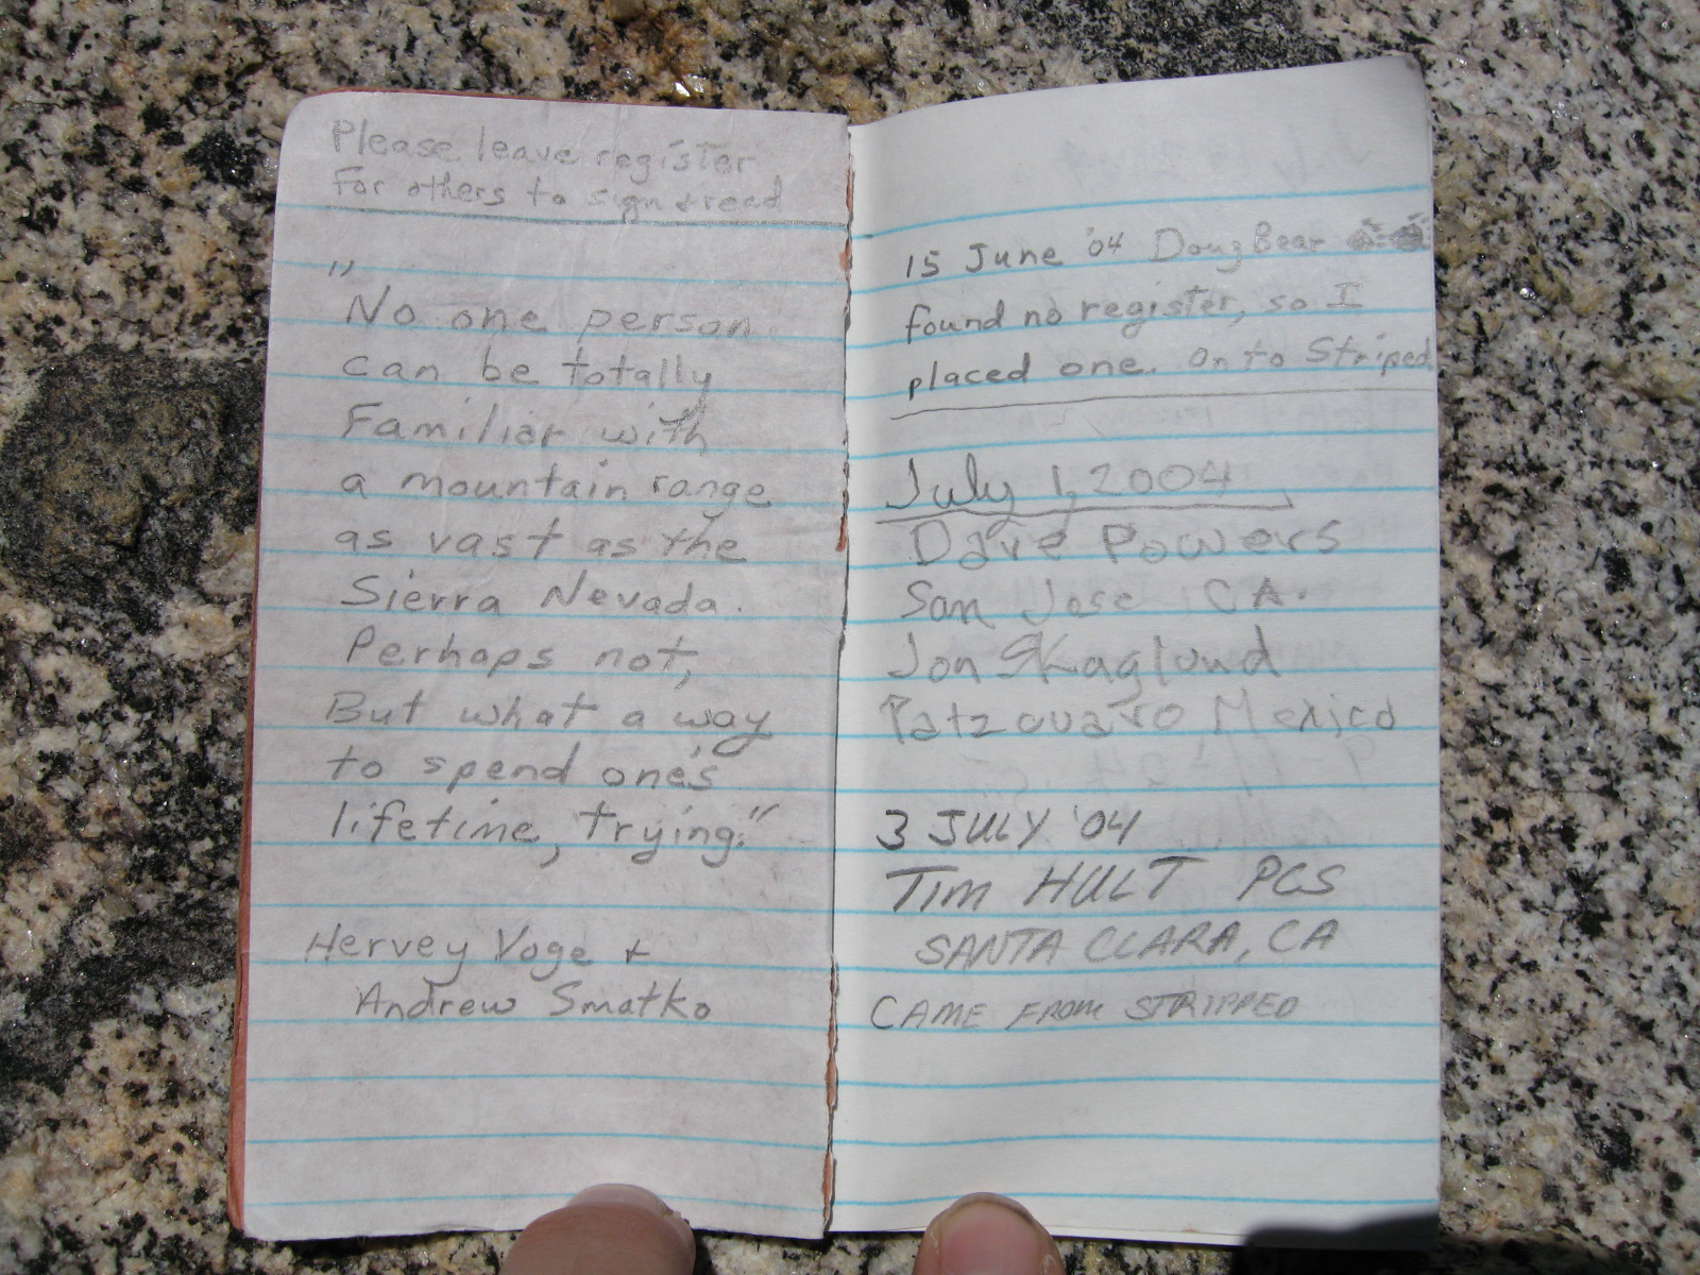 Please leave register
For others to sign & read
"
No one person
can be totally
Familiar with
a mountain range
as vast as the
Sierra Nevada.
Perhaps not,
But what a way
to spend one's
lifetime, trying."
Hervey Voge +
Andrew Smatko
15 June '04 Doug Bear
found no register, so I
placed one. On to Striped
July 1, 2004
Dave Powers
San Jose CA.
Jon Skaglund
Patzcuaro, Mexico
3 JULY '04
TIM HULT PCS
SANTA CLARA, CA
CAME FROM STRIPPED